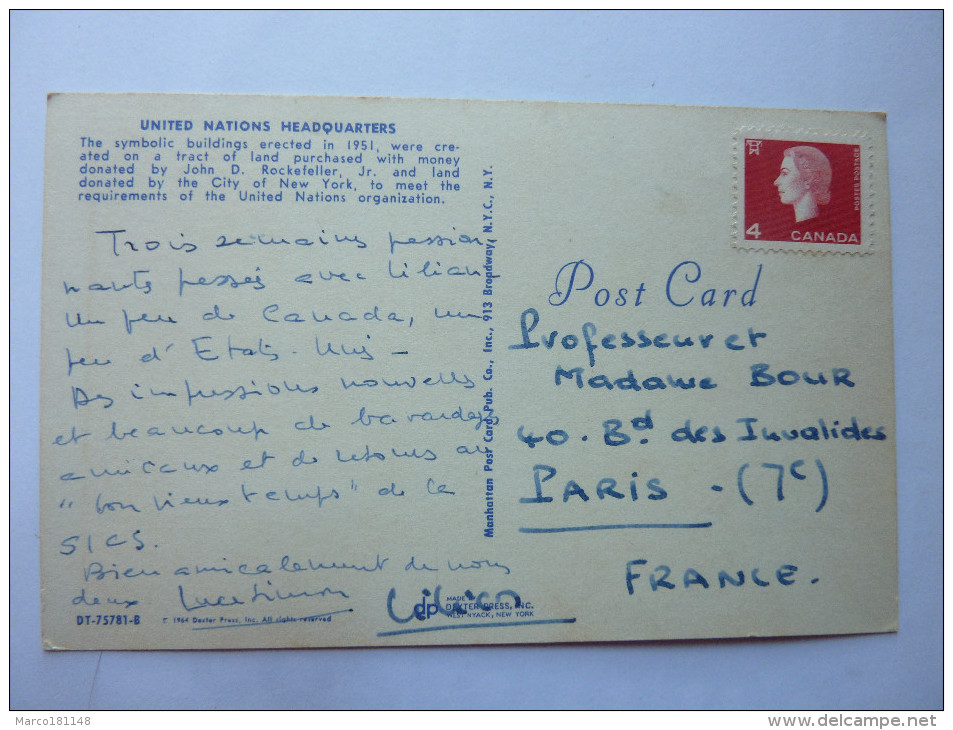 UNITED NATIONS HEADQUARTERS
The symbolic buildings erected in 1951, were cre-
ated on a tract of land purchased with money
donated by John D. Rockefeller, Jr. and land
donated by the City of New York, to meet the
requirements of the United Nations organization.
Trois semaines passion
nantes passés avec Lilian
Un peu de Canada, un
peu d'Etats-Unis -
Des impressions nouvelles
et beaucoup de bavardages
amicaux et de retours au
"bon vieux temps" de la
SICS.
Bien amicalement de nous
deux
DT-75781-B
© 1964 Dexter Press, Inc. All rights reserved
dp
MADE BY
DEXTER PRESS, INC.
WEST NYACK, NEW YORK
Manhattan Post Card Pub. Co., Inc., 913 Broadway, N.Y.C., N.Y.
4
CANADA
POSTES POSTAGE
Post Card
Professeur et
Madame BOUR
40. Bd des Invalides
PARIS - (7e)
FRANCE.
Marco181148
www.delcampe.net